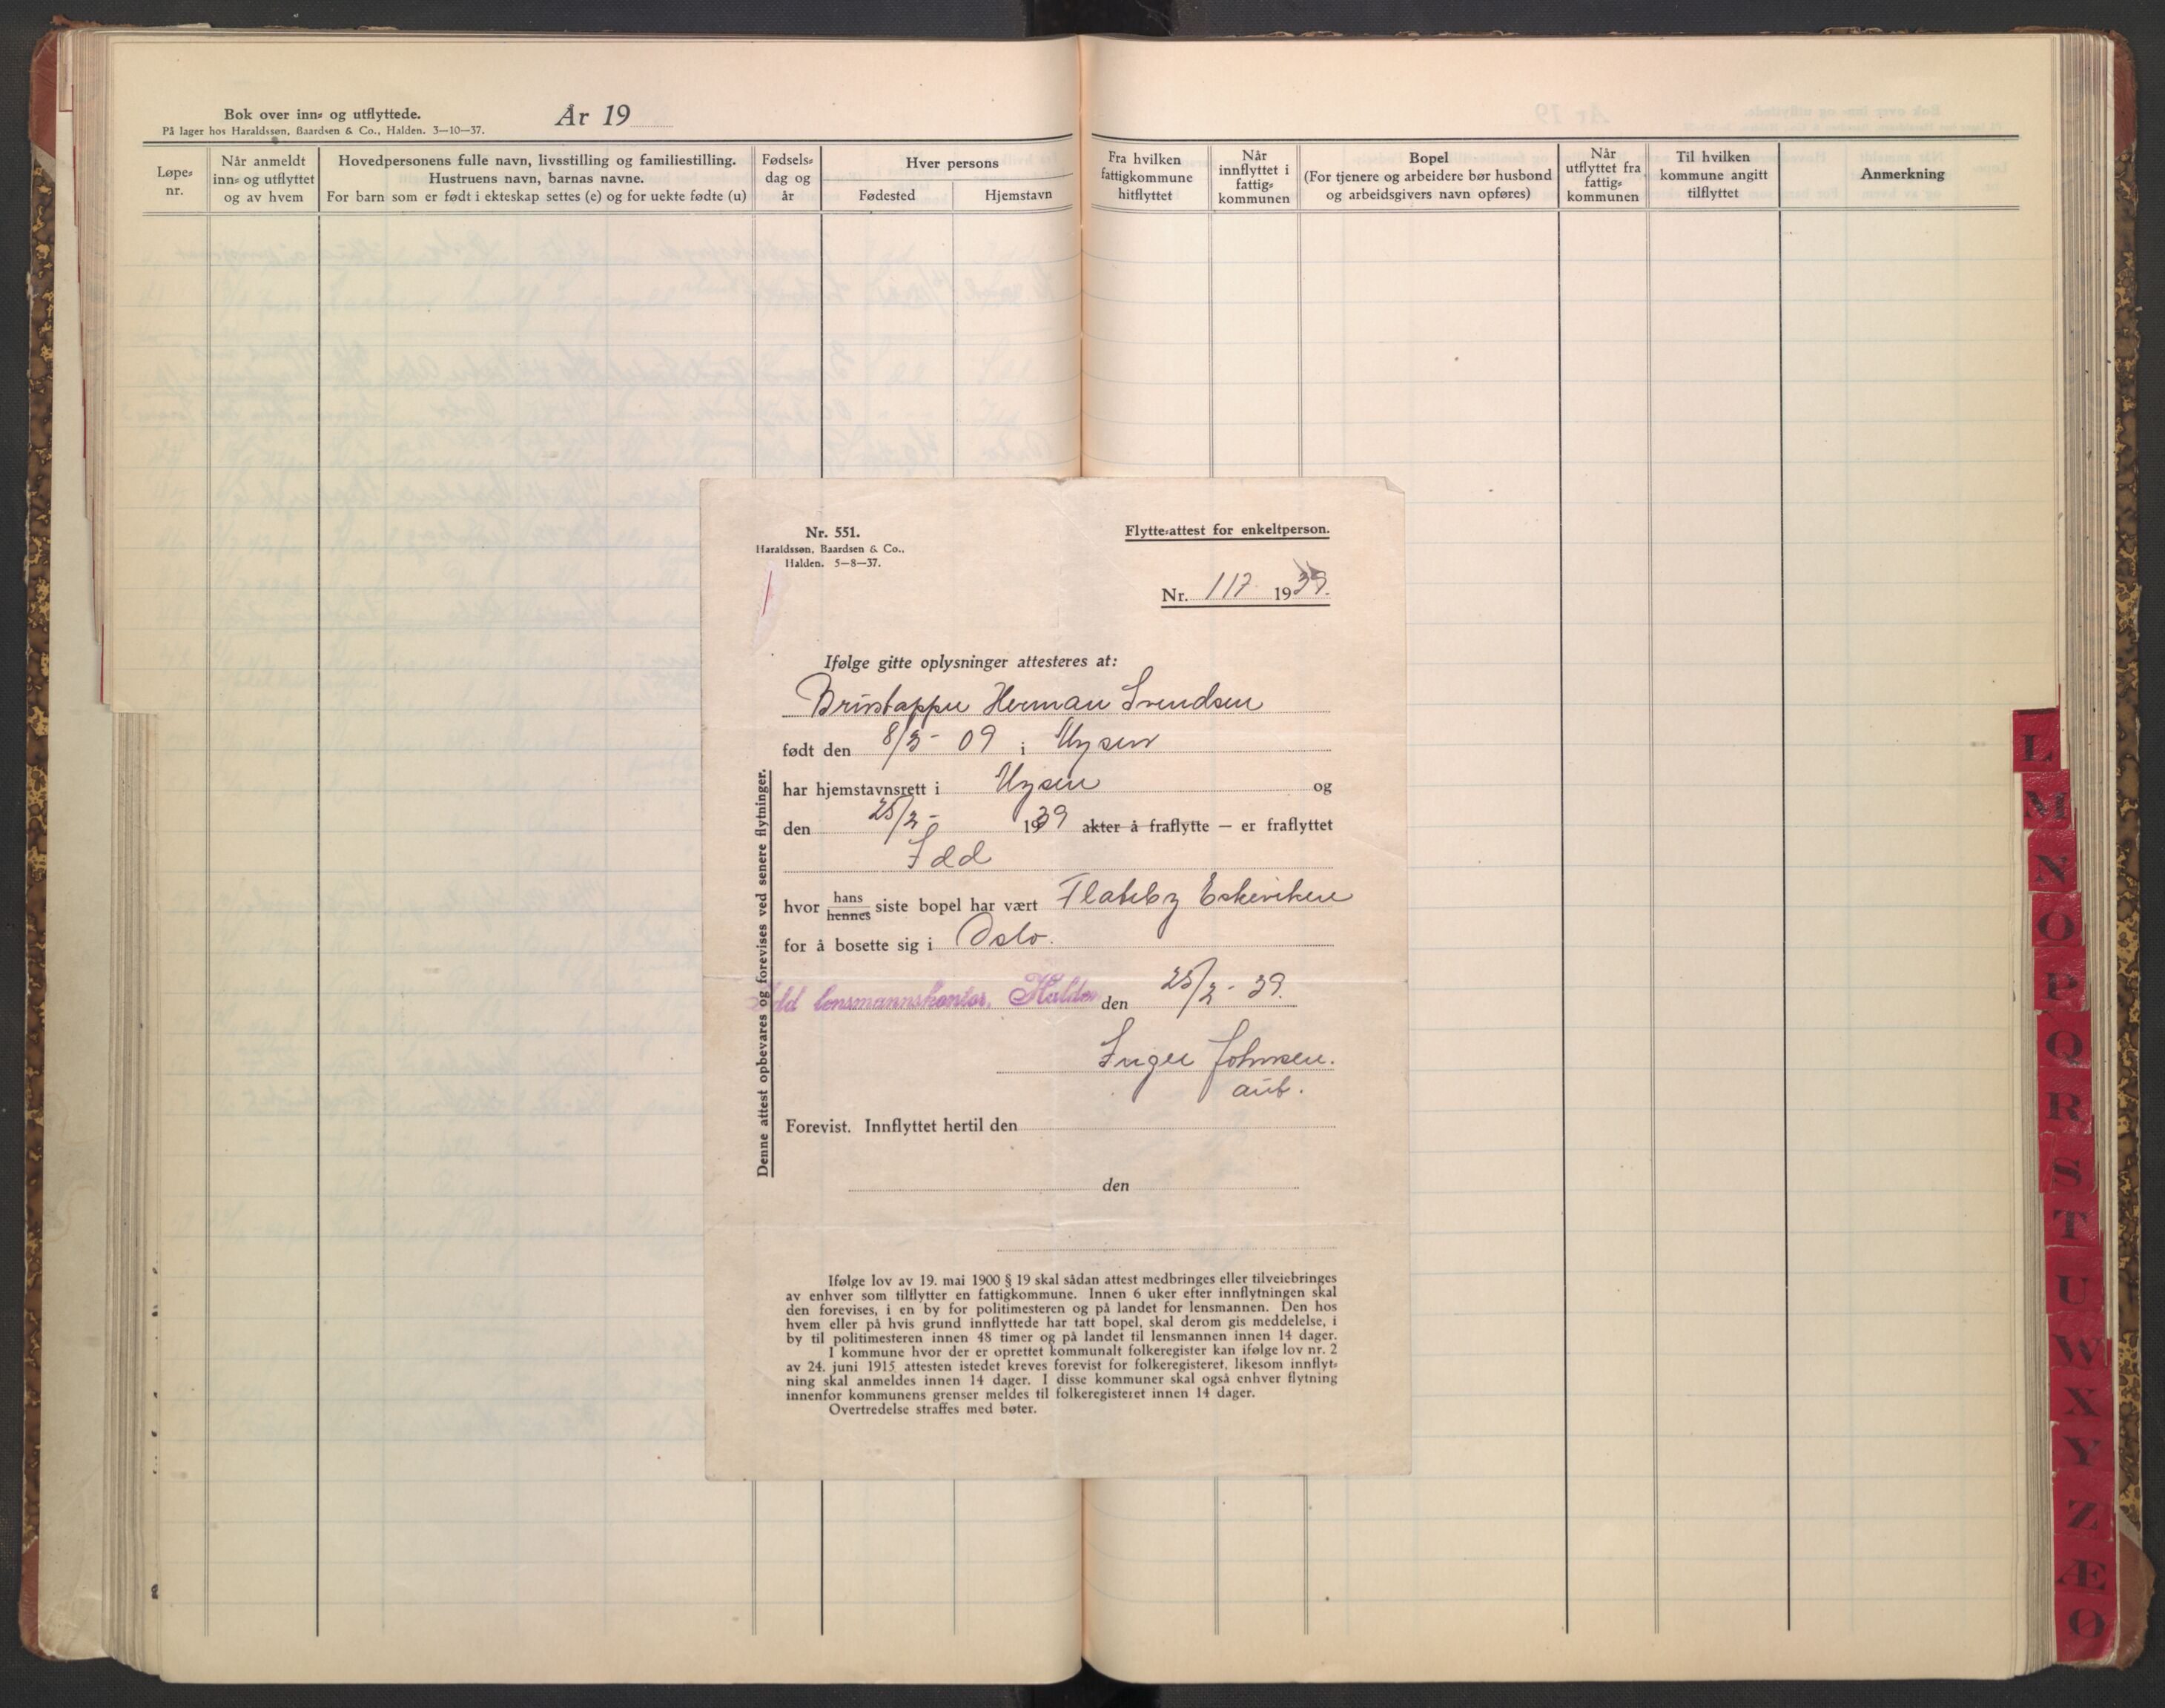 Bok over inn- og utflyttede.
På lager hos Haraldssøn, Baardsen & Co., Halden. 3—10—37.
År 19
Løpe-
nr.
Når anmeldt
inn- og utflyttet
og av hvem
Hovedpersonens fulle navn, livsstilling og familiestilling.
Hustruens navn, barnas navne.
For barn som er født i ekteskap settes (e) og for uekte fødte (u)
Fødsels-
dag og
år
Hver persons
Fødested
Hjemstavn
Fra hvilken
fattigkommune
hitflyttet
Når
innflyttet i
fattig-
kommunen
Bopel
(For tjenere og arbeidere bør husbond
og arbeidsgivers navn opføres)
Når
utflyttet fra
fattig-
kommunen
Til hvilken
kommune angitt
tilflyttet
Anmerkning
Nr. 551.
Haraldssøn, Baardsen & Co.,
Halden. 5—8—37.
Flytte-attest for enkeltperson.
Nr. 117. 1939.
Ifølge gitte oplysninger attesteres at:
Herman Svendsen
født den 8/3- 09 i Mysen
har hjemstavnsrett i Mysen og
den 25/2- 1939 akter å fraflytte — er fraflyttet
Idd
hvor hans/hennes siste bopel har vært Flateby Eskeviken
for å bosette sig i Oslo.
Idd lensmannskontor, Halden den 25/2- 39.
Inger Johnsen.
aut.
Forevist. Innflyttet hertil den
den
Denne attest opbevares og forevises ved senere flytninger.
Ifølge lov av 19. mai 1900 § 19 skal sådan attest medbringes eller tilveiebringes
av enhver som tilflytter en fattigkommune. Innen 6 uker efter innflytningen skal
den forevises, i en by for politimesteren og på landet for lensmannen. Den hos
hvem eller på hvis grund innflyttede har tatt bopel, skal derom gis meddelelse, i
by til politimesteren innen 48 timer og på landet til lensmannen innen 14 dager.
I kommune hvor der er oprettet kommunalt folkeregister kan ifølge lov nr. 2
av 24. juni 1915 attesten istedet kreves forevist for folkeregisteret, likesom innflyt-
ning skal anmeldes innen 14 dager. I disse kommuner skal også enhver flytning
innenfor kommunens grenser meldes til folkeregisteret innen 14 dager.
Overtredelse straffes med bøter.
L
M
N
O
P
Q
R
S
T
U
W
X
Y
Z
Æ
Ø